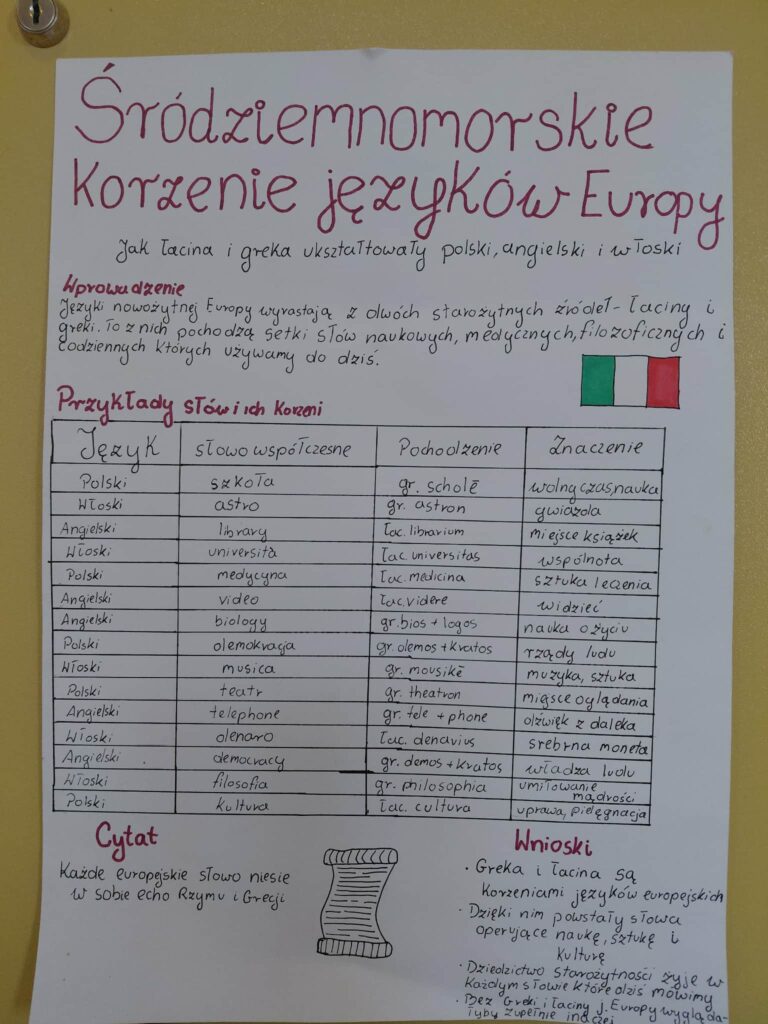 Śródziemnomorskie
korzenie języków Europy
Jak łacina i greka ukształtowały polski, angielski i włoski
Wprowadzenie
Języki nowożytnej Europy wyrastają z dwóch starożytnych źródeł - łaciny i
greki. To z nich pochodzą setki słów naukowych, medycznych, filozoficznych i
codziennych których używamy do dziś.
Przykłady słów i ich korzeni
Język słowo współczesne Pochodzenie Znaczenie
Polski szkoła gr. scholē wolny czas, nauka
Włoski astro gr. astron gwiazda
Angielski library łac. librarium miejsce książek
Włoski università łac. universitas wspólnota
Polski medycyna łac. medicina sztuka leczenia
Angielski video łac. videre widzieć
Angielski biology gr. bios + logos nauka o życiu
Polski demokracja gr. demos + kratos rządy ludu
Włoski musica gr. mousikē muzyka, sztuka
Polski teatr gr. theatron miejsce oglądania
Angielski telephone gr. tele + phone dźwięk z daleka
Włoski denaro łac. denarius srebrna moneta
Angielski democracy gr. demos + kratos władza ludu
Włoski filosofia gr. philosophia umiłowanie mądrości
Polski kultura łac. cultura uprawa, pielęgnacja
Cytat
Każde europejskie słowo niesie
w sobie echo Rzymu i Grecji
Wnioski
• Greka i łacina są
korzeniami języków europejskich
• Dzięki nim powstały słowa
operujące naukę, sztukę i
kulturę
• Dziedzictwo starożytności żyje w
każdym słowie które dziś mówimy
• Bez Greki i łaciny j. Europy wygląda-
łyby zupełnie inaczej